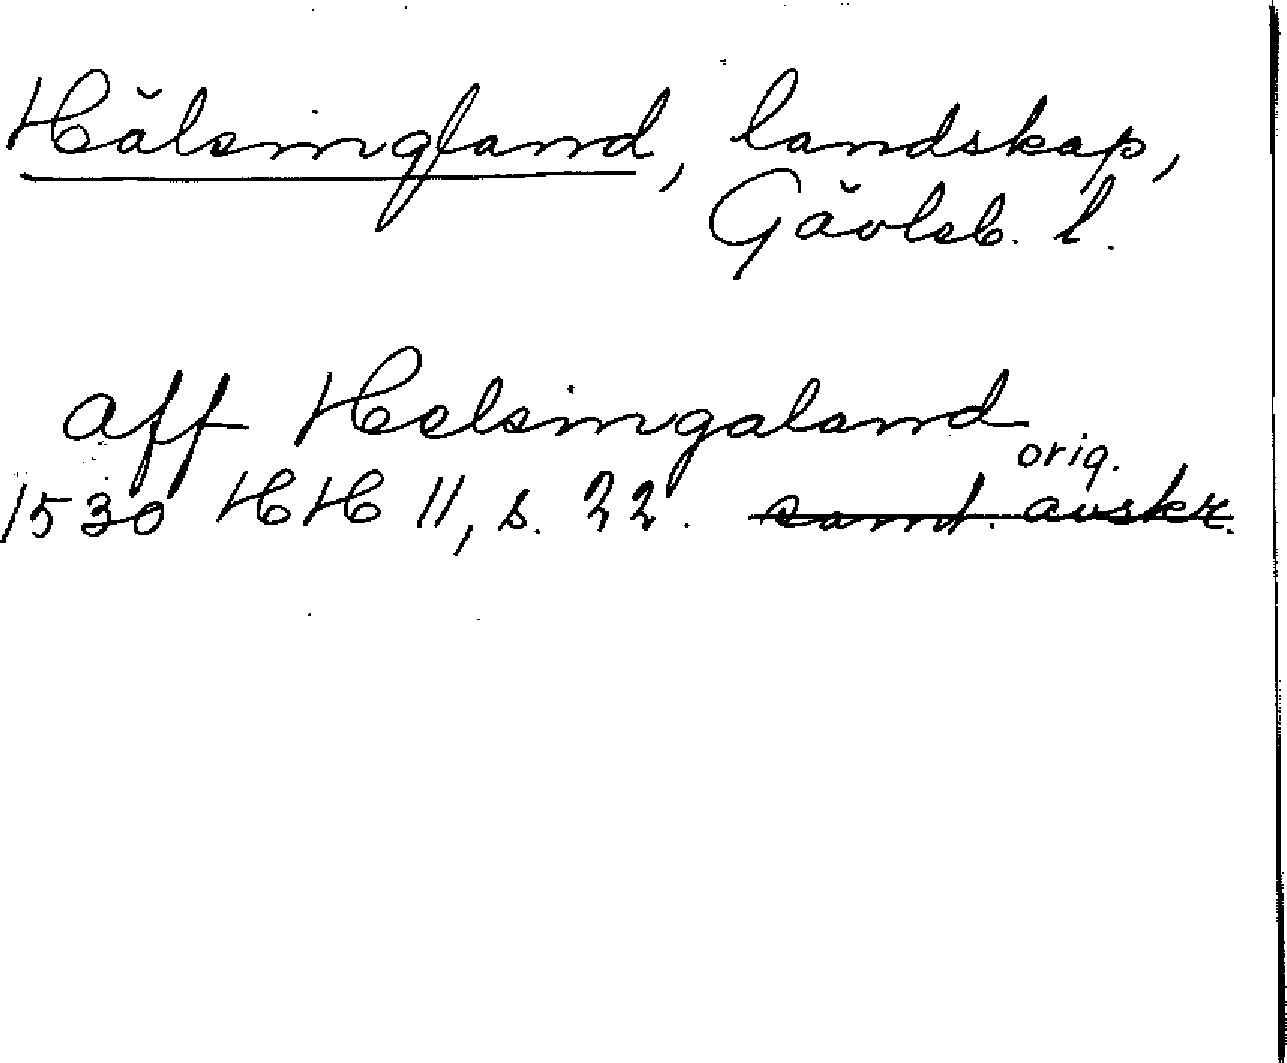 Hälsingland, landskap,
Gävleb. l.
aff Helsingaland
orig.
1530 HH 11, s. 22. samt. avskr.